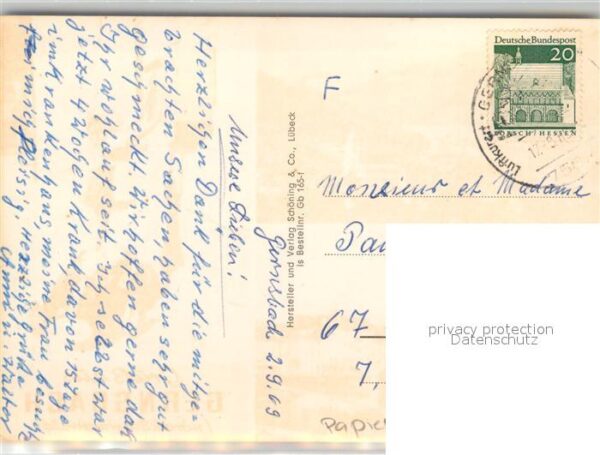 Gernsbach 2.9.69
Unsere Lieben!
Herzlichen Dank für die mitge-
brachten Sachen, haben sehr gut
geschmeckt. Wir hoffen gerne daß
Ihr wohlauf seit. Ich selbst war
jetzt 4 Wochen krank, davon 15 Tage
im Krankenhaus, meine Frau besuchte
mich fleissig. Herzliche Grüße
Walter
Hersteller und Verlag Schöning & Co., Lübeck
is Bestellnr. Gb 165-f
F
Deutsche Bundespost
20
LORSCH/HESSEN
Luftkurort
Monsieur et Madame
67
7,
privacy protection
Datenschutz
Papier